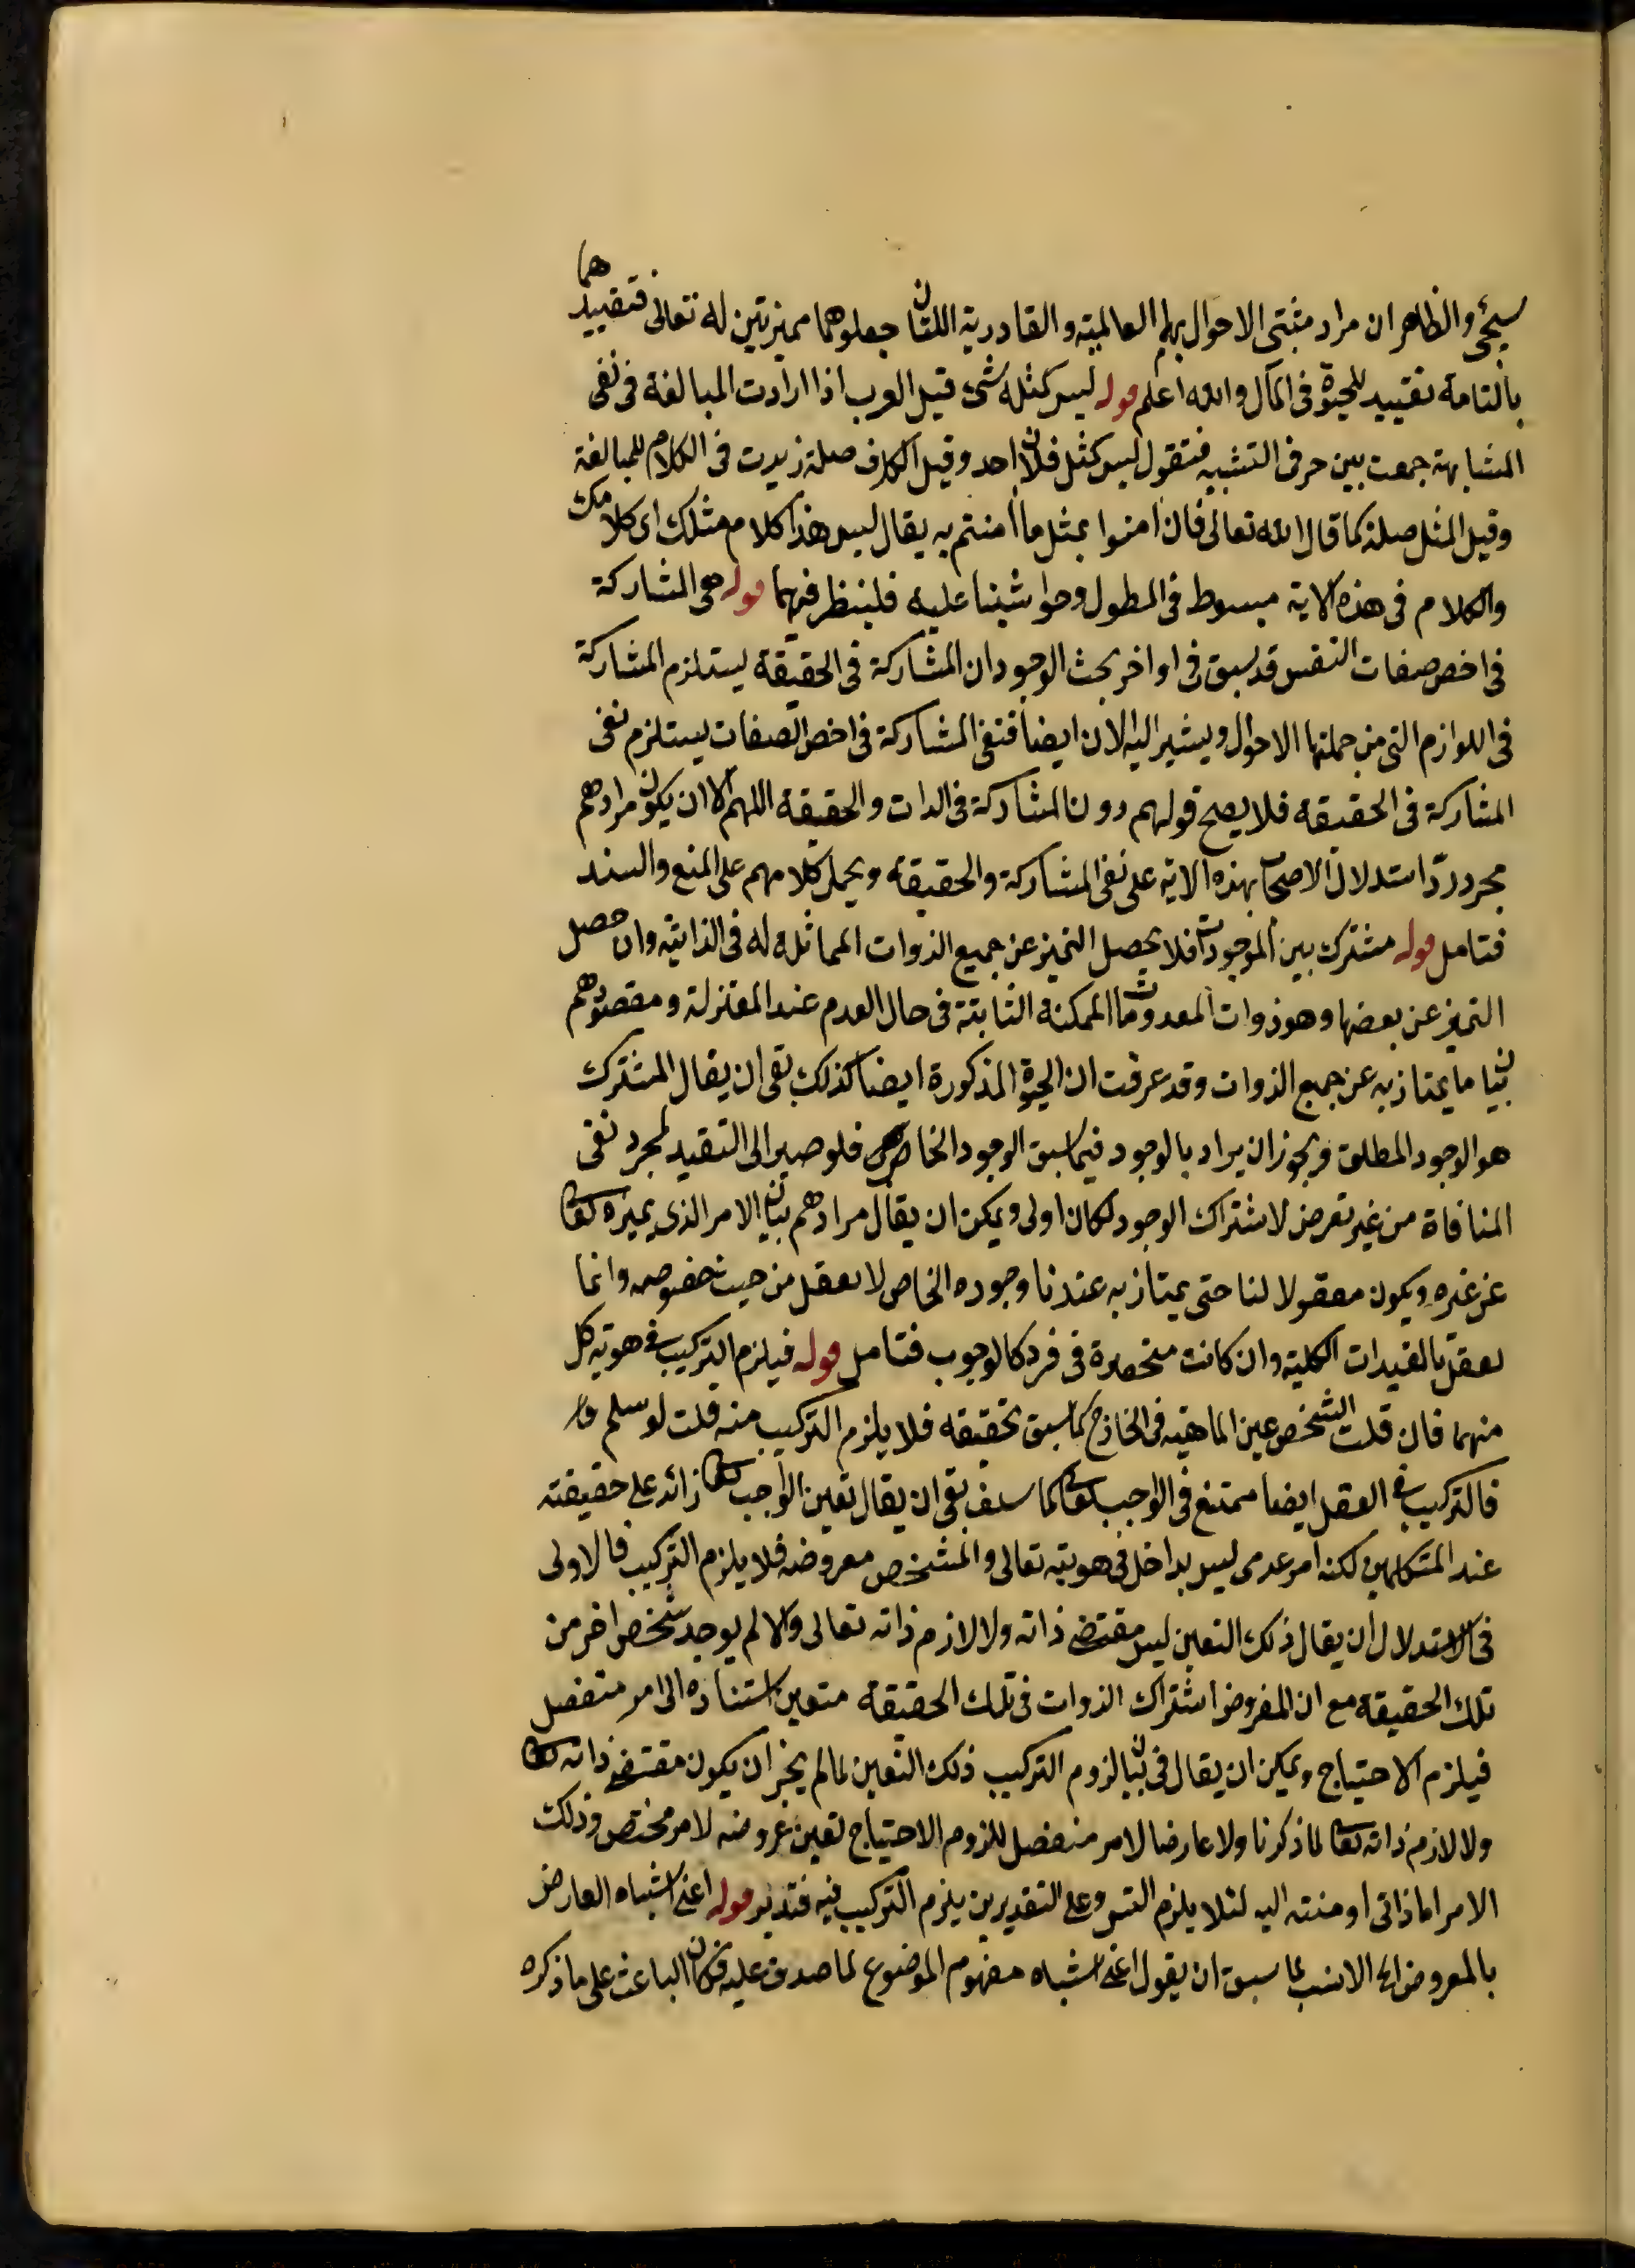 سيجئ والظاهر ان مراد مثبتى الاحوال بهما العالمية والقادرية اللتان جعلوهما مميزتين له تعالى فتقييدهما
بالتامة تقييد للحيوة فى المآل والله اعلم قوله ليس كمثله شئ قيل العرب اذا ارادت المبالغة فى نفى
المشابهة جمعت بين حرفى التشبيه فتقول ليس كمثل فلان احد وقيل الكاف صلة زيدت فى الكلام للمبالغة
وقيل المثل صلة كما قال الله تعالى فان امنوا بمثل ما امنتم به يقال ليس هذا كلام مثلك اى كلامك
والكلام فى هذه الاية مبسوط فى المطول وحواشينا عليه فلينظر فيهما قوله هى المشاركة
فى اخص صفات النفس قد سبق فى اواخر بحث الوجود ان المشاركة فى الحقيقة يستلزم المشاركة
فى اللوازم التى من جملتها الاحوال ويشير اليه الان ايضا فنفى المشاركة فى اخص الصفات يستلزم نفى
المشاركة فى الحقيقة فلا يصح قولهم دون المشاركة فى الذات والحقيقة اللهم الا ان يكون مرادهم
مجرد ردّ استدلال الاصحاب بهذه الاية على نفى المشاركة والحقيقة ويحمل كلامهم على المنع والسند
فتامل قوله مشترك بين الموجودات فلا يحصل التميز عن جميع الذوات المماثلة له فى الذاتية وان حصل
التميز عن بعضها وهو ذوات المعدومات الممكنة الثابتة فى حال العدم عند المعتزلة ومقصودهم
بيان ما يمتاز به عن جميع الذوات وقد عرفت ان الحيوة المذكورة ايضا كذلك بقى ان يقال المشترك
هو الوجود المطلق ويجوز ان يراد بالوجود فيما سبق الوجود الخاص فلو صير الى التقيد لمجرد نفى
المنافاة من غير تعرض لاشتراك الوجود لكان اولى ويمكن ان يقال مرادهم بيان الامر الذى يميزه تعا
عن غيره ويكون معقولا لنا حتى يمتاز به عندنا وجوده الخاص لا يعقل من حيث خصوصه وانما
يعقل بالقيدات الكلية وان كانت منحصرة فى فرد كالوجوب فتامل قوله فيلزم التركيب فى هوية كل
منهما فان قلت الشخص عين الماهية فى الخارج كما سبق تحقيقه فلا يلزم التركيب منه قلت لو سلم
فالتركيب فى العقل ايضا ممتنع فى الواجب تعا كما سلف بقى ان يقال تعين الواجب تعا زائد على حقيقته
عند المتكلمين لكنه امر عدمى ليس بداخل فى هويته تعالى والمشخص معروضه فلا يلزم التركيب فالاولى
فى الاستدلال ان يقال ذلك التعين ليس مقتضى ذاته ولا لازم ذاته تعالى والا لم يوجد شخص اخر من
تلك الحقيقة مع ان المفروض اشتراك الذوات فى تلك الحقيقة متعين استناده الى امر منفصل
فيلزم الاحتياج ويمكن ان يقال فى بيان لزوم التركيب ذلك التعين لما لم يجز ان يكون مقتضى ذاته تعا
ولا لازم ذاته تعا لما ذكرنا ولا عارضا لامر منفصل للزوم الاحتياج تعين عروضه لامر مختص وذلك
الامر اما ذاتى او منته اليه لئلا يلزم التس وعلى التقديرين يلزم التركيب فيه فتدبر قوله اعنى اشتباه العارض
بالمعروض الخ الانسب لما سبق ان يقول اعنى اشتباه مفهوم الموضوع لما صدق عليه فكان الباعث على ما ذكره